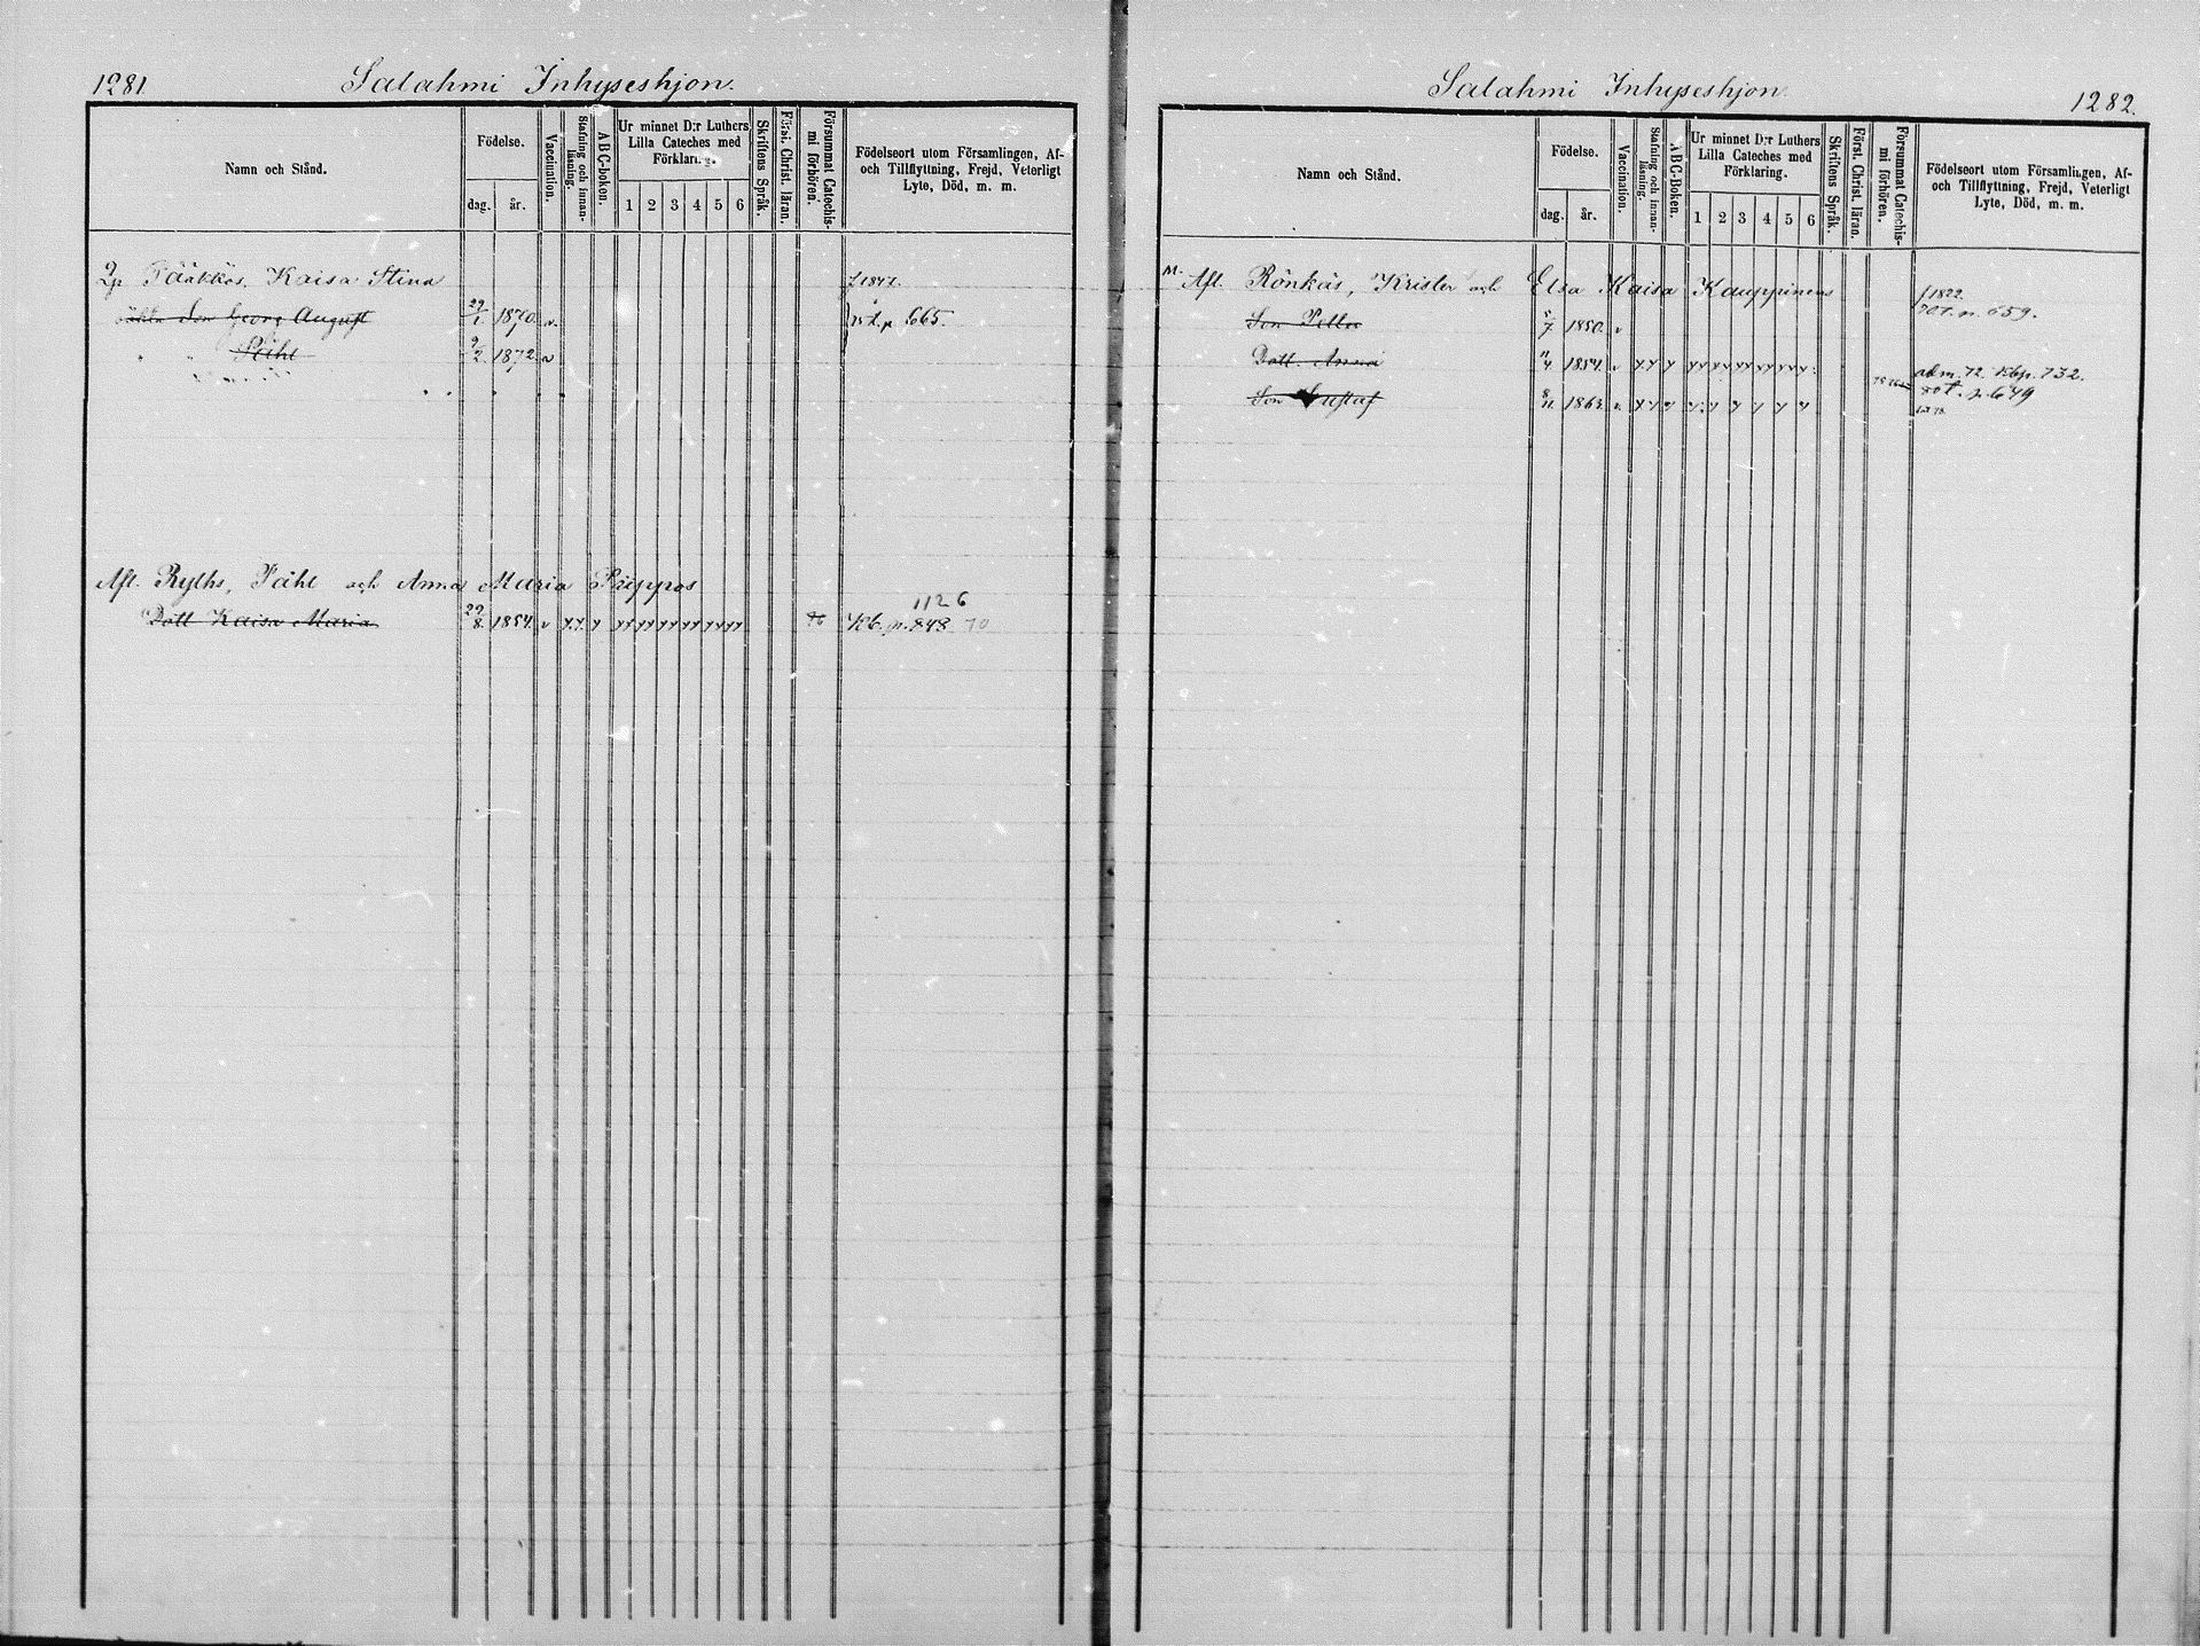 1281.
Salahmi Inhyseshjon.
Namn och Stånd.
Födelse.
dag.
år.
Vaccination.
Stafning och innan-läsning.
ABC-boken.
Ur minnet D:r Luthers
Lilla Cateches med
Förklaring.
1 2 3 4 5 6
Skriftens Språk.
Först. Christ. läran.
Försummat Catechis-
mi förhören.
Födelseort utom Församlingen, Af-
och Tillflyttning, Frejd, Veterligt
Lyte, Död, m. m.
Pääkkös, Kaisa Stina f 1847.
Son Georg August 29/1. 1870. v. p. 665.
" " Påhl 9/2. 1872. v
Afl. Ryths, Påhl och Anna Maria Pieppos
1126
Dott Kaisa Maria 29/8. 1854. v Kb. p. 848. 70
Salahmi Inhyseshjon.
1282.
Namn och Stånd.
Födelse.
dag.
år.
Vaccination.
Stafning och innan-läsning.
ABC-Boken.
Ur minnet D:r Luthers
Lilla Cateches med
Förklaring.
1 2 3 4 5 6
Skriftens Språk.
Först. Christ. läran.
Försummat Catechis-
mi förhören.
Födelseort utom Församlingen, Af-
och Tillflyttning, Frejd, Veterligt
Lyte, Död, m. m.
M. Afl. Rönkäs, Krister och Elsa Kaisa Kauppinens f 1822.
Son Pella 5/7 1850. v rot. p. 659.
Dott. Anna 11/4. 1854. v adm. 72. Kbp. 732.
Son Gustaf 8/11. 1863. v. rot. p. 649